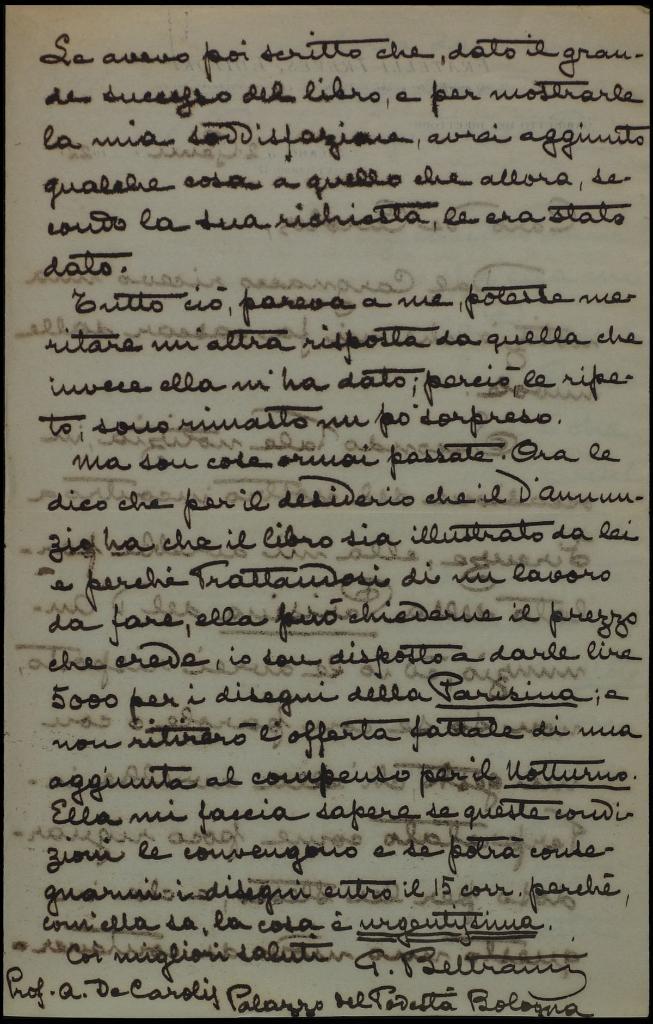 Le avevo poi scritto che, dato il gran-
de successo del libro, e per mostrarle
la mia soddisfazione, avrei aggiunto
qualche cosa a quello che allora, se-
condo la sua richiesta, le era stato
dato.
Tutto ciò, pareva a me, potesse me-
ritare un'altra risposta da quella che
invece ella m'ha dato; perciò, le ripe-
to, sono rimasto un po' sorpreso.
Ma son cose ormai passate. Ora le
dico che per il desiderio che il D'Annun-
zio ha che il libro sia illustrato da lei
e perchè trattandosi di un lavoro
da fare, ella può chiederne il prezzo
che crede, io son disposto a darle lire
5000 per i disegni della Parisina; e
non ritirerò l'offerta fattale di una
aggiunta al compenso per il Notturno.
Ella mi faccia sapere se queste condi-
zioni le convengono e se potrà conse-
gnarmi i disegni entro il 15 corr. perchè,
com'ella sa, la cosa è urgentissima.
Coi migliori saluti
T. Beltrami
Prof. A. De Carolis Palazzo del Podestà Bologna